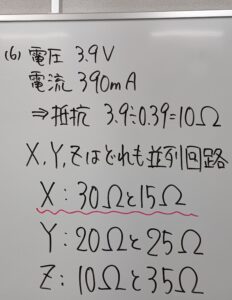 (6) 電圧 3.9V
電流 390mA
⇒抵抗 3.9÷0.39=10Ω
X,Y,Zはどれも並列回路
X:30Ωと15Ω
Y:20Ωと25Ω
Z:10Ωと35Ω